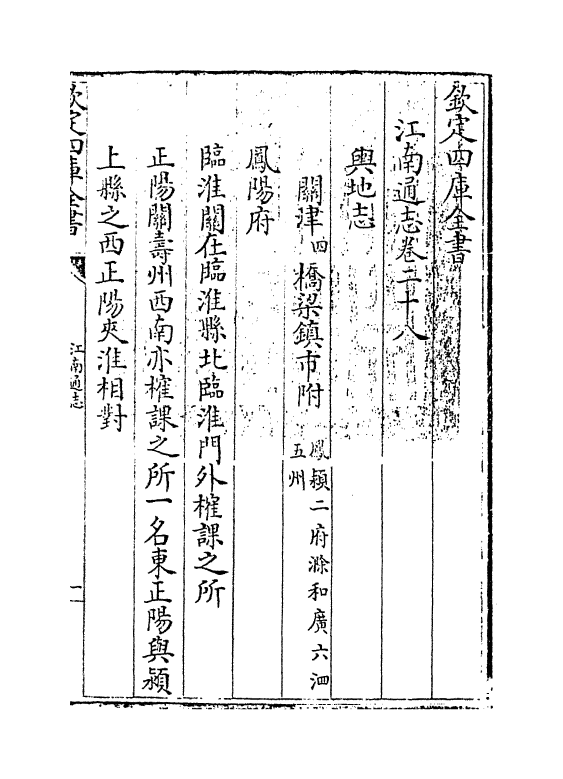 欽定四庫全書
江南通志卷二十八
輿地志
關津四橋梁鎮市附鳳潁二府滁和廣六泗五州
鳳陽府
臨淮關在臨淮縣北臨淮門外榷課之所
正陽關壽州西南亦榷課之所一名東正陽與潁
上縣之西正陽夾淮相對
欽定四庫全書
江南通志
一